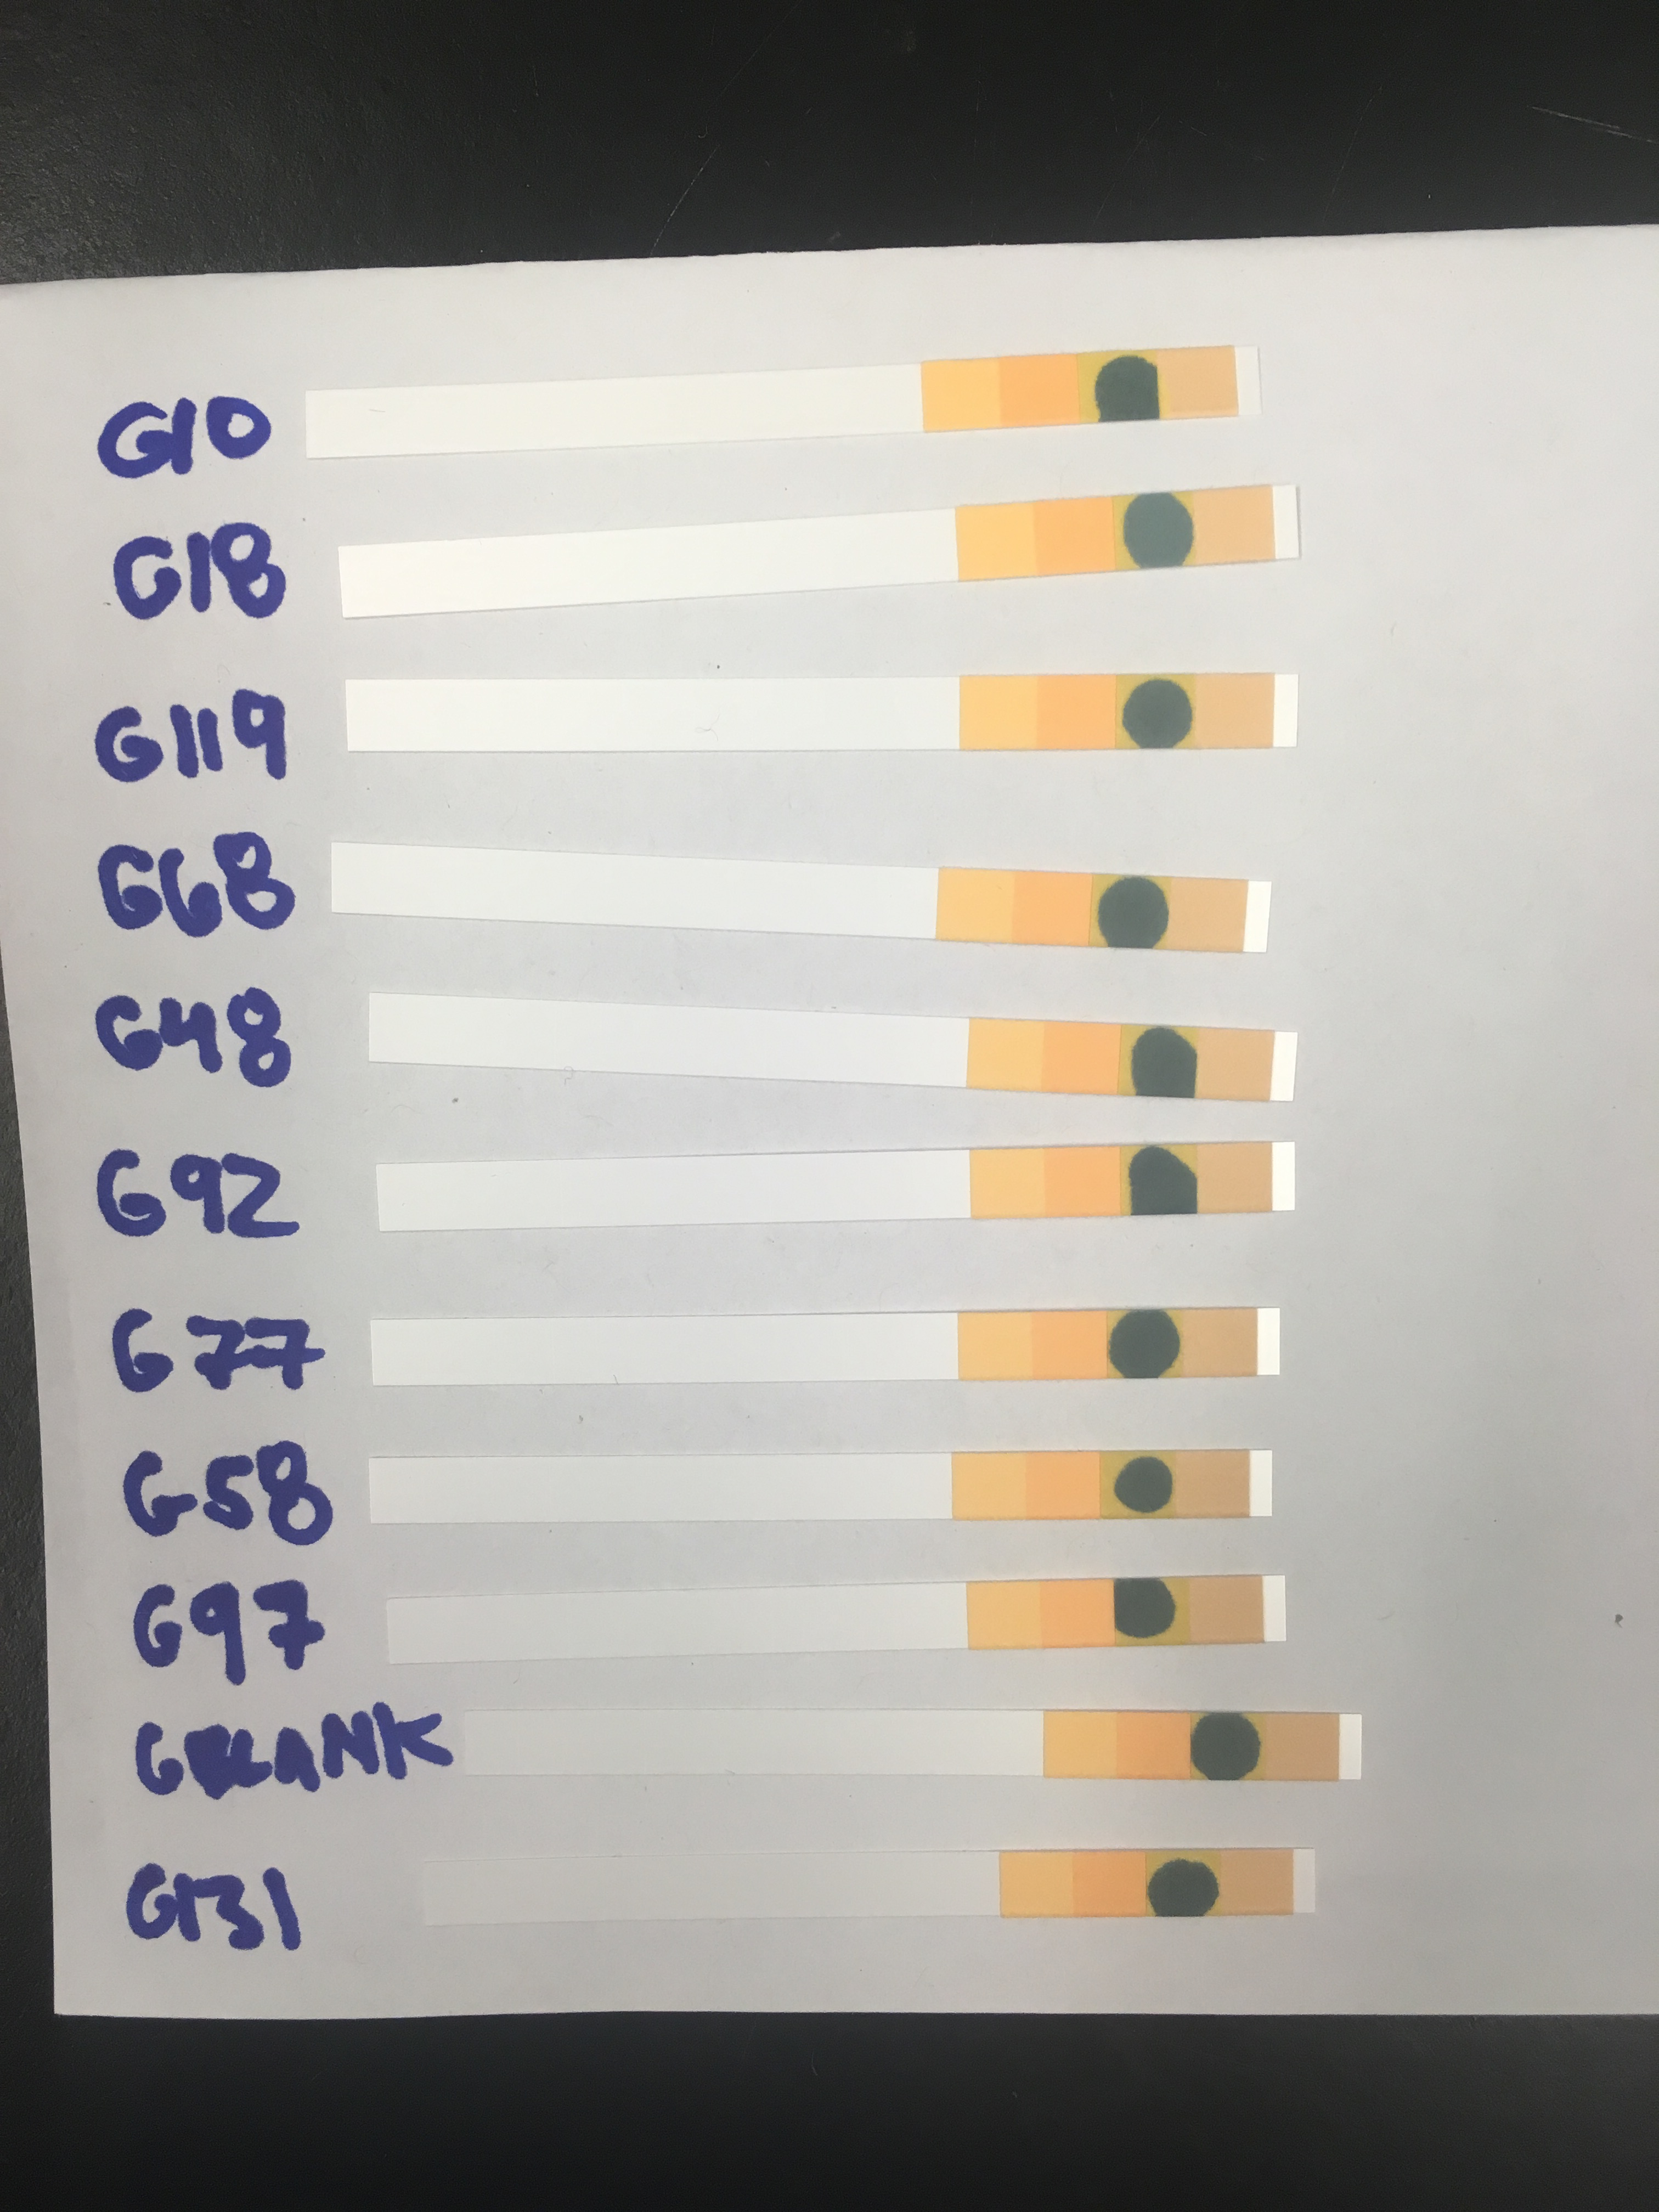 G10
G18
G119
G68
G48
G92
G77
G58
G97
GBLANK
G131